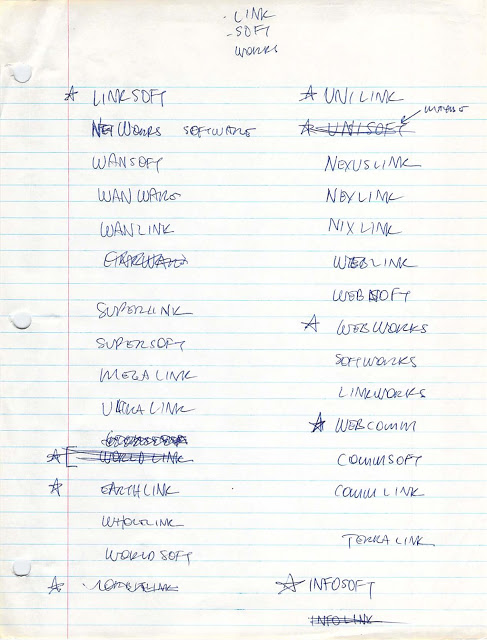 - LINK
- SOFT
WORKS
☆ LINKSOFT
NETWORKS SOFTWARE
WANSOFT
WANWARE
WANLINK
SUPERLINK
SUPERSOFT
MEGALINK
ULTRALINK
☆ WORLDLINK
☆ EARTHLINK
WHOLELINK
WORLDSOFT
☆
☆ UNILINK
☆ UNISOFT
NEXUSLINK
NEXLINK
NIXLINK
WEBLINK
WEBSOFT
☆ WEBWORKS
SOFTWORKS
LINKWORKS
☆ WEBCOMM
COMMSOFT
COMMLINK
TERRALINK
☆ INFOSOFT
INFOLINK